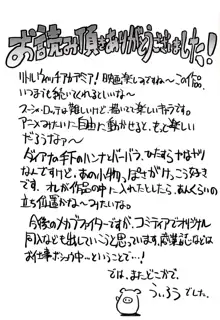 お読み頂きありがとうございました！
リトルウィッチアカデミア！映画楽しみですね〜この作品、
いつまでも続いてくれるといいな〜
スーシィ・ロッテは難しいけど、描いてて楽しいキャラです。
アニメみたいに自由に動かせると、もっと楽しい
だろうなァ〜
ダイアナの手下のハンナとバーバラ、ひたすらかませなヤツ
なんですけど、あの小物、ぽさがけっこう好き
です。オレが作品の中に入れたとしたら、あんくらいの
立ち位置かな〜みたいな。
今後のメカブファイターですが、コミティアでオリジナル
同人なども出していこうと思っています。応業誌などは
お仕事ちょう中…ということで…！
では、またどこかで。
ういろうでした。